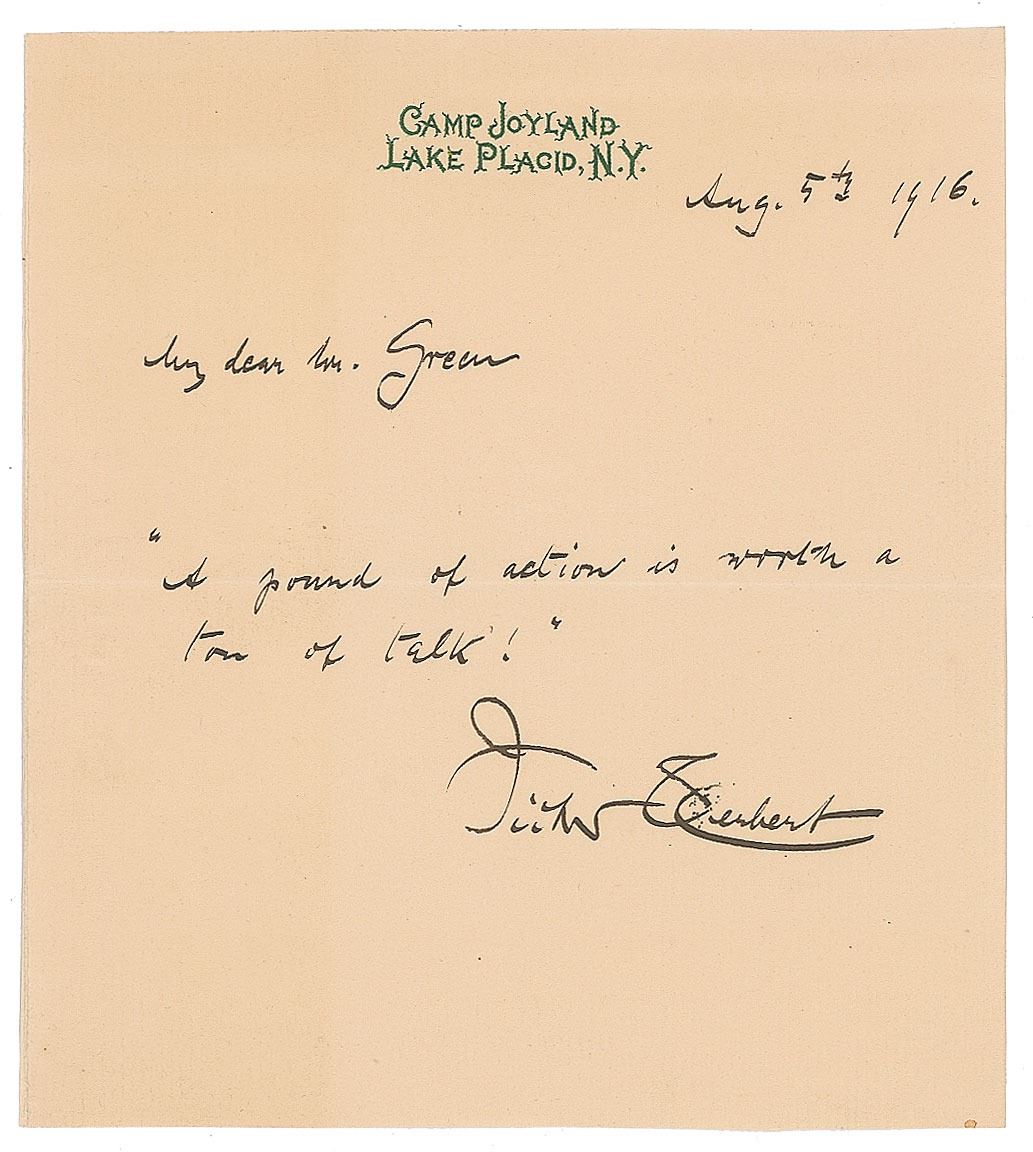 CAMP JOYLAND
LAKE PLACID, N.Y.
Aug. 5th 1916.
My dear Mr. Green
"A pound of action is worth a
ton of talk!"
Victor Herbert